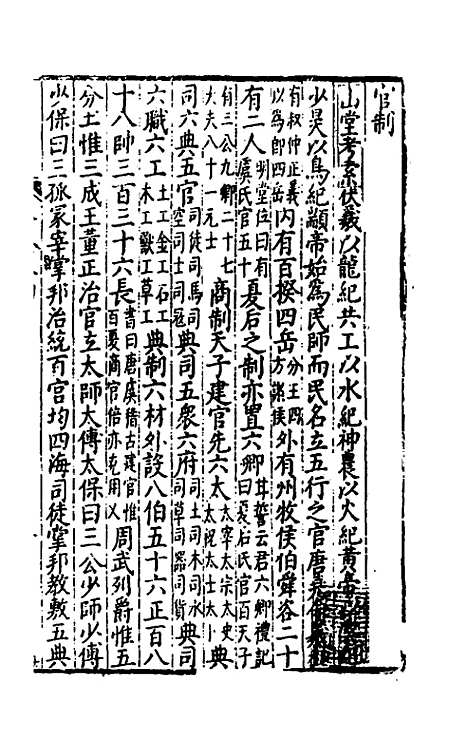 官制
山堂考索伏羲以龍紀共工以水紀神農以火紀黃帝
少昊以鳥紀顓帝始為民師而民名立五行之官唐
有叔仲正義以為即四岳内有百揆四岳分王四方諸侯外有州牧侯伯舜咨二十
有二人明堂位曰有虞氏官五十夏后之制亦置六卿甘誓云召六卿禮記曰夏后氏官百天子
有三公九卿二十七大夫八十一元士商制天子建官先六太太宰太宗太史太祝太士太卜典
司六典五官司徒司馬司空司士司寇典司五衆六府司土司木司水司草司器司貨典司
六職六工土工金工石工木工獸工草工典制六材外設八伯五十六正百八
十八帥三百三十六長書曰唐虞稽古建官惟百夏商官倍亦克用乂周武列爵惟五
分土惟三成王董正治官立太師太傅太保曰三公少師少傅
少保曰三孤冢宰掌邦治統百官均四海司徒掌邦教敷五典